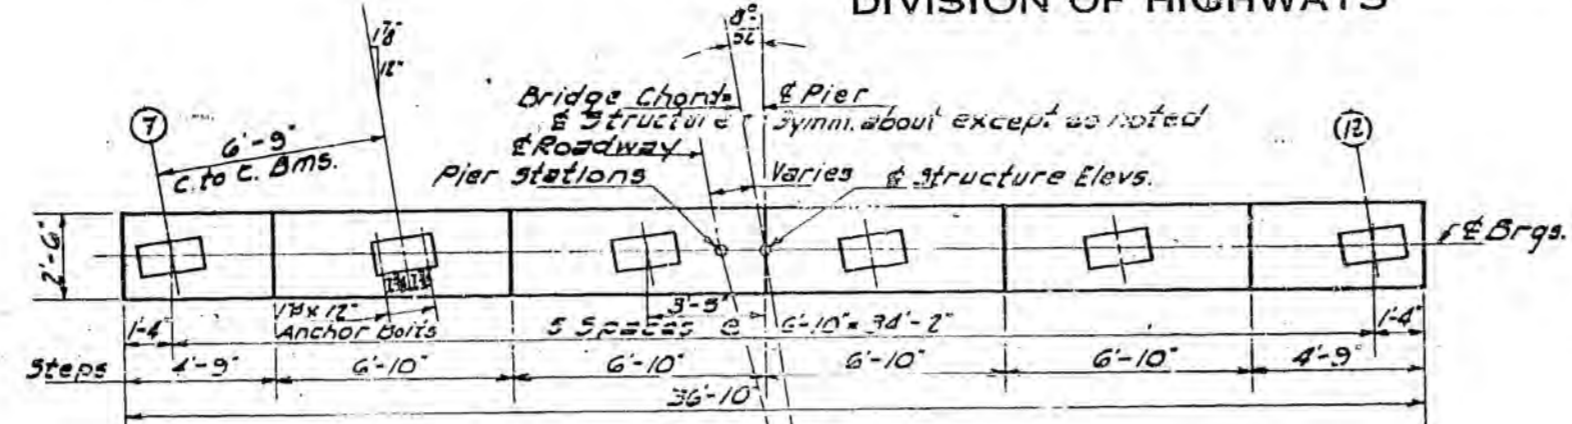 DIVISION OF HIGHWAYS
8°
52'
1⅞
12"
Bridge Chord=
℄ Structure
℄ Pier
Symm. about except as noted
7
6'-9"
C. to C. Bms.
℄ Roadway
12
Pier Stations
Varies
℄ Structure Elevs.
2'-6"
℄ Brgs.
12"
Anchor Bolts
3'-5"
1'-4"
5 Spaces @ 6'-10" = 34'-2"
1'-4"
Steps
4'-9"
6'-10"
6'-10"
6'-10"
6'-10"
4'-9"
36'-10"